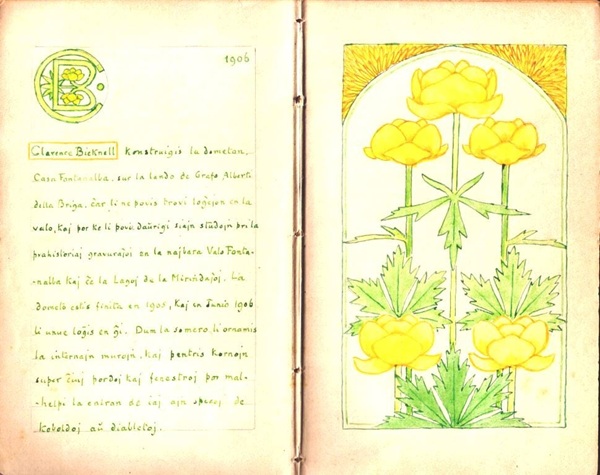 CB.
1906
Clarence Bicknell konstruigis la dometon,
Casa Fontanalba, sur la lando de Grafo Alberti
della Briga, ĉar li ne povis trovi loĝejon en la
valo, kaj por ke li povu daŭrigi siajn studojn pri la
prahistoriaj gravuraĵoj en la najbara Valo Fonta-
-nalba kaj ĉe la Lagoj de la Mirindaĵoj. La
dometo estis finita en 1905, kaj en Junio 1906
li unue loĝis en ĝi. Dum la somero, li ornamis
la internajn murojn, kaj pentris kornojn
super ĉiuj pordoj kaj fenestroj por mal-
-helpi la eniron de iaj ajn specoj de
koboldoj aŭ diabletoj.